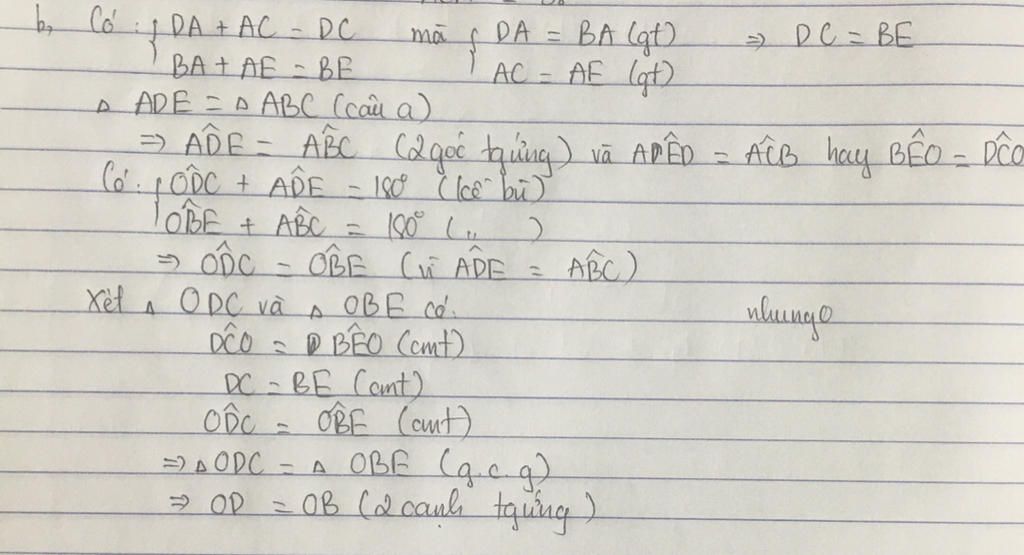 b, Có: { DA + AC = DC mà { DA = BA (gt) ⇒ DC = BE
BA + AE = BE AC = AE (gt)
△ ADE = △ ABC (câu a)
⇒ AD̂E = AB̂C (2 góc tg ứng) và AÊD = AĈB hay BÊO = DĈO
Có: { OD̂C + AD̂E = 180° (kề bù)
OB̂E + AB̂C = 180° (,, )
⇒ OD̂C = OB̂E (vì AD̂E = AB̂C)
Xét △ ODC và △ OBE có. nhungo
DĈO = BÊO (cmt)
DC = BE (cmt)
OD̂C = OB̂E (cmt)
⇒ △ ODC = △ OBE (g.c.g)
⇒ OD = OB (2 cạnh tg ứng)